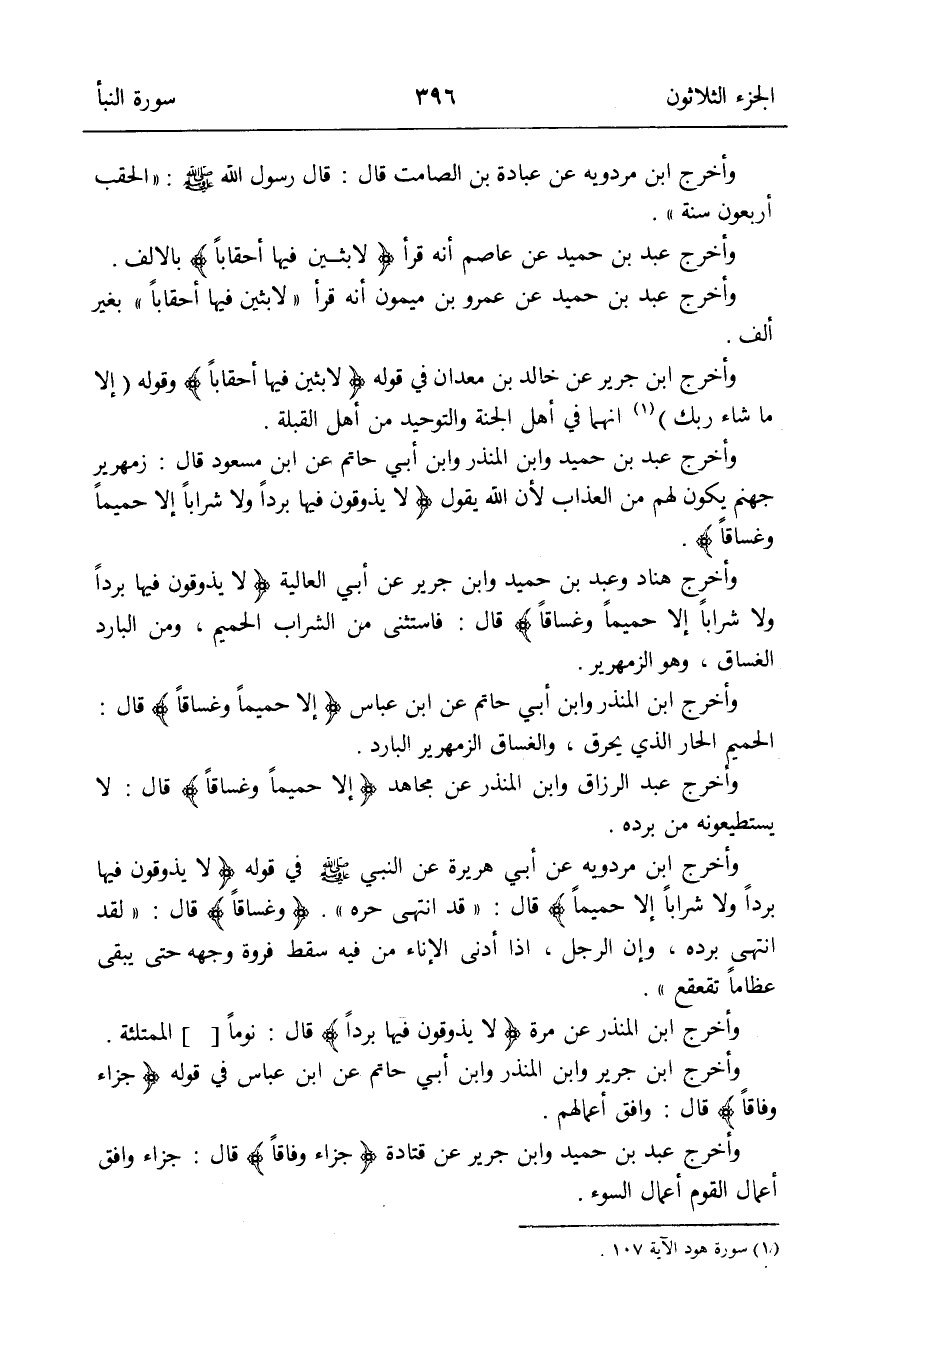 الجزء الثلاثون ٣٩٦ سورة النبأ
وأخرج ابن مردويه عن عبادة بن الصامت قال : قال رسول الله ﷺ : «الحقب
أربعون سنة » .
وأخرج عبد بن حميد عن عاصم أنه قرأ ﴿ لابثـين فيها أحقاباً ﴾ بالالف .
وأخرج عبد بن حميد عن عمرو بن ميمون أنه قرأ « لابثين فيها أحقاباً » بغير
ألف .
وأخرج ابن جرير عن خالد بن معدان في قوله ﴿ لابثين فيها أحقاباً ﴾ وقوله ( إلا
ما شاء ربك )(١) انهما في أهل الجنة والتوحيد من أهل القبلة .
وأخرج عبد بن حميد وابن المنذر وابن أبي حاتم عن ابن مسعود قال : زمهرير
جهنم يكون لهم من العذاب لأن الله يقول ﴿ لا يذوقون فيها برداً ولا شراباً إلا حميماً
وغساقاً ﴾ .
وأخرج هناد وعبد بن حميد وابن جرير عن أبي العالية ﴿ لا يذوقون فيها برداً
ولا شراباً إلا حميماً وغساقاً ﴾ قال : فاستثنى من الشراب الحميم ، ومن البارد
الغساق ، وهو الزمهرير .
وأخرج ابن المنذر وابن أبي حاتم عن ابن عباس ﴿ إلا حميماً وغساقاً ﴾ قال :
الحميم الحار الذي يحرق ، والغساق الزمهرير البارد .
وأخرج عبد الرزاق وابن المنذر عن مجاهد ﴿ إلا حميماً وغساقاً ﴾ قال : لا
يستطيعونه من برده .
وأخرج ابن مردويه عن أبي هريرة عن النبي ﷺ في قوله ﴿ لا يذوقون فيها
برداً ولا شراباً إلا حميماً ﴾ قال : « قد انتهى حره » . ﴿ وغساقاً ﴾ قال : « لقد
انتهى برده ، وإن الرجل ، اذا أدنى الإناء من فيه سقط فروة وجهه حتى يبقى
عظاماً تقعقع » .
وأخرج ابن المنذر عن مرة ﴿ لا يذوقون فيها برداً ﴾ قال : نوماً [ ] الممتلئة .
وأخرج ابن جرير وابن المنذر وابن أبي حاتم عن ابن عباس في قوله ﴿ جزاء
وفاقاً ﴾ قال : وافق أعمالهم .
وأخرج عبد بن حميد وابن جرير عن قتادة ﴿ جزاء وفاقاً ﴾ قال : جزاء وافق
أعمال القوم أعمال السوء .
(١) سورة هود الآية ١٠٧ .